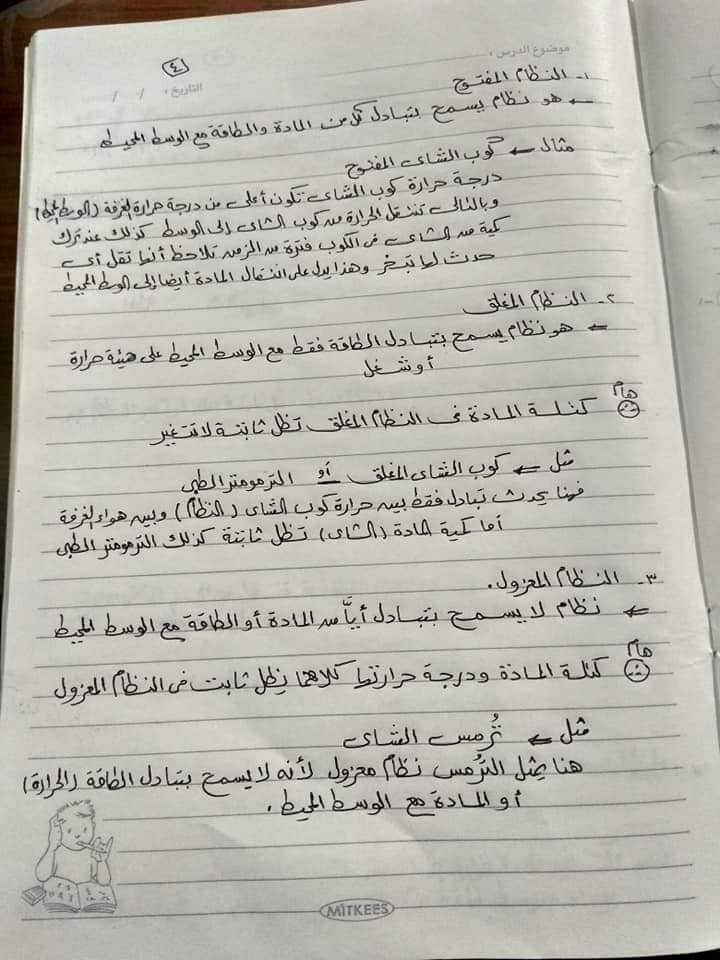 موضوع الدرس :
٤
التاريخ : / /
١- النظام المفتوح
← هو نظام يسمح بتبادل كل من المادة والطاقة مع الوسط المحيط
مثال ← كوب الشاى المفتوح
درجة حرارة كوب الشاى تكون أعلى من درجة حرارة الغرفة (الوسط المحيط)
وبالتالى تنتقل الحرارة من كوب الشاى إلى الوسط كذلك عند ترك
كمية من الشاى فى الكوب فترة من الزمن تلاحظ أنها تقل أى
حدث لها تبخر وهذا يدل على انتقال المادة أيضا إلى الوسط المحيط
٢- النظام المغلق
← هو نظام يسمح بتبادل الطاقة فقط مع الوسط المحيط على هيئة حرارة
أو شغل
هام
كتلة المادة فى النظام المغلق تظل ثابتة لا تتغير
مثل ← كوب الشاى المغلق أو الترمومتر الطبى
فهنا يحدث تبادل فقط بين حرارة كوب الشاى (النظام) وبين هواء الغرفة
أما كمية المادة (الشاى) تظل ثابتة كذلك الترمومتر الطبى
٣- النظام المعزول.
← نظام لا يسمح بتبادل أياً من المادة أو الطاقة مع الوسط المحيط
هام
كتلة المادة ودرجة حرارتها كلاهما يظل ثابت فى النظام المعزول
مثل ← تُرمس الشاى
هنا يمثل التُرمس نظام معزول لأنه لا يسمح بتبادل الطاقة (الحرارة)
أو المادة مع الوسط المحيط.
MITKEES